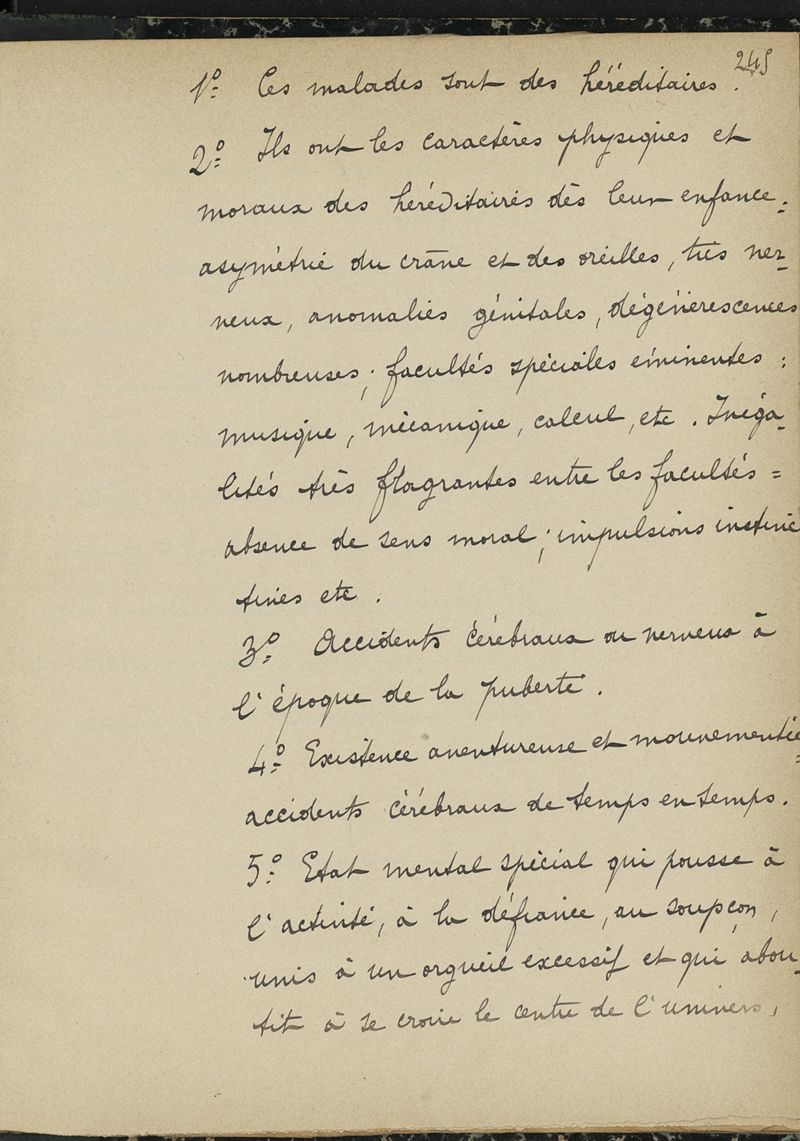 245
1º Ces malades sont des héréditaires.
2º Ils ont les caractères physiques et
moraux des héréditaires dès leur enfance :
asymétrie du crâne et des oreilles, très ner-
veux, anomalies génitales, dégénérescences
nombreuses ; facultés spéciales éminentes :
musique, mécanique, calcul, etc. Inéga-
lités très flagrantes entre les facultés =
absence de sens moral ; impulsions instinc
tives etc.
3º Accidents cérébraux ou nerveux à
l'époque de la puberté.
4º Existence aventureuse et mouvementée =
accidents cérébraux de temps en temps.
5º Etat mental spécial qui pousse à
l'activité, à la défiance, au soupçon,
unis à un orgueil excessif et qui abou-
tit à se croire le centre de l'univers,